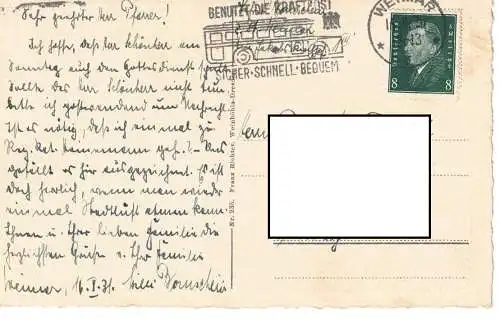 Sehr geehrter Herr Pfarrer!
Ich hoffe, daß Herr Schönherr am
Sonntag auch den Gottesdienst
Sollte der Herr Schönherr nicht
bitte ich postwendend um Nachricht
Ist es nötig, daß ich einmal zu
Reg. Rat. gehe? - Uns
gefällt es hier ausgezeichnet. Es ist
doch herrlich, wenn man wieder
einmal Stadtluft atmen kann.
Ihnen u. Ihrer lieben Familie die
herzlichsten Grüße v. Ihrer Familie
Weimar, 16.I.31. Willi
BENUTZT DIE KRAFTPOST
SICHER·SCHNELL·BEQUEM
WEIMAR
Deutsches
Reich
8 8
Nr. 235. Franz Richter, Weinböhla-Dresden